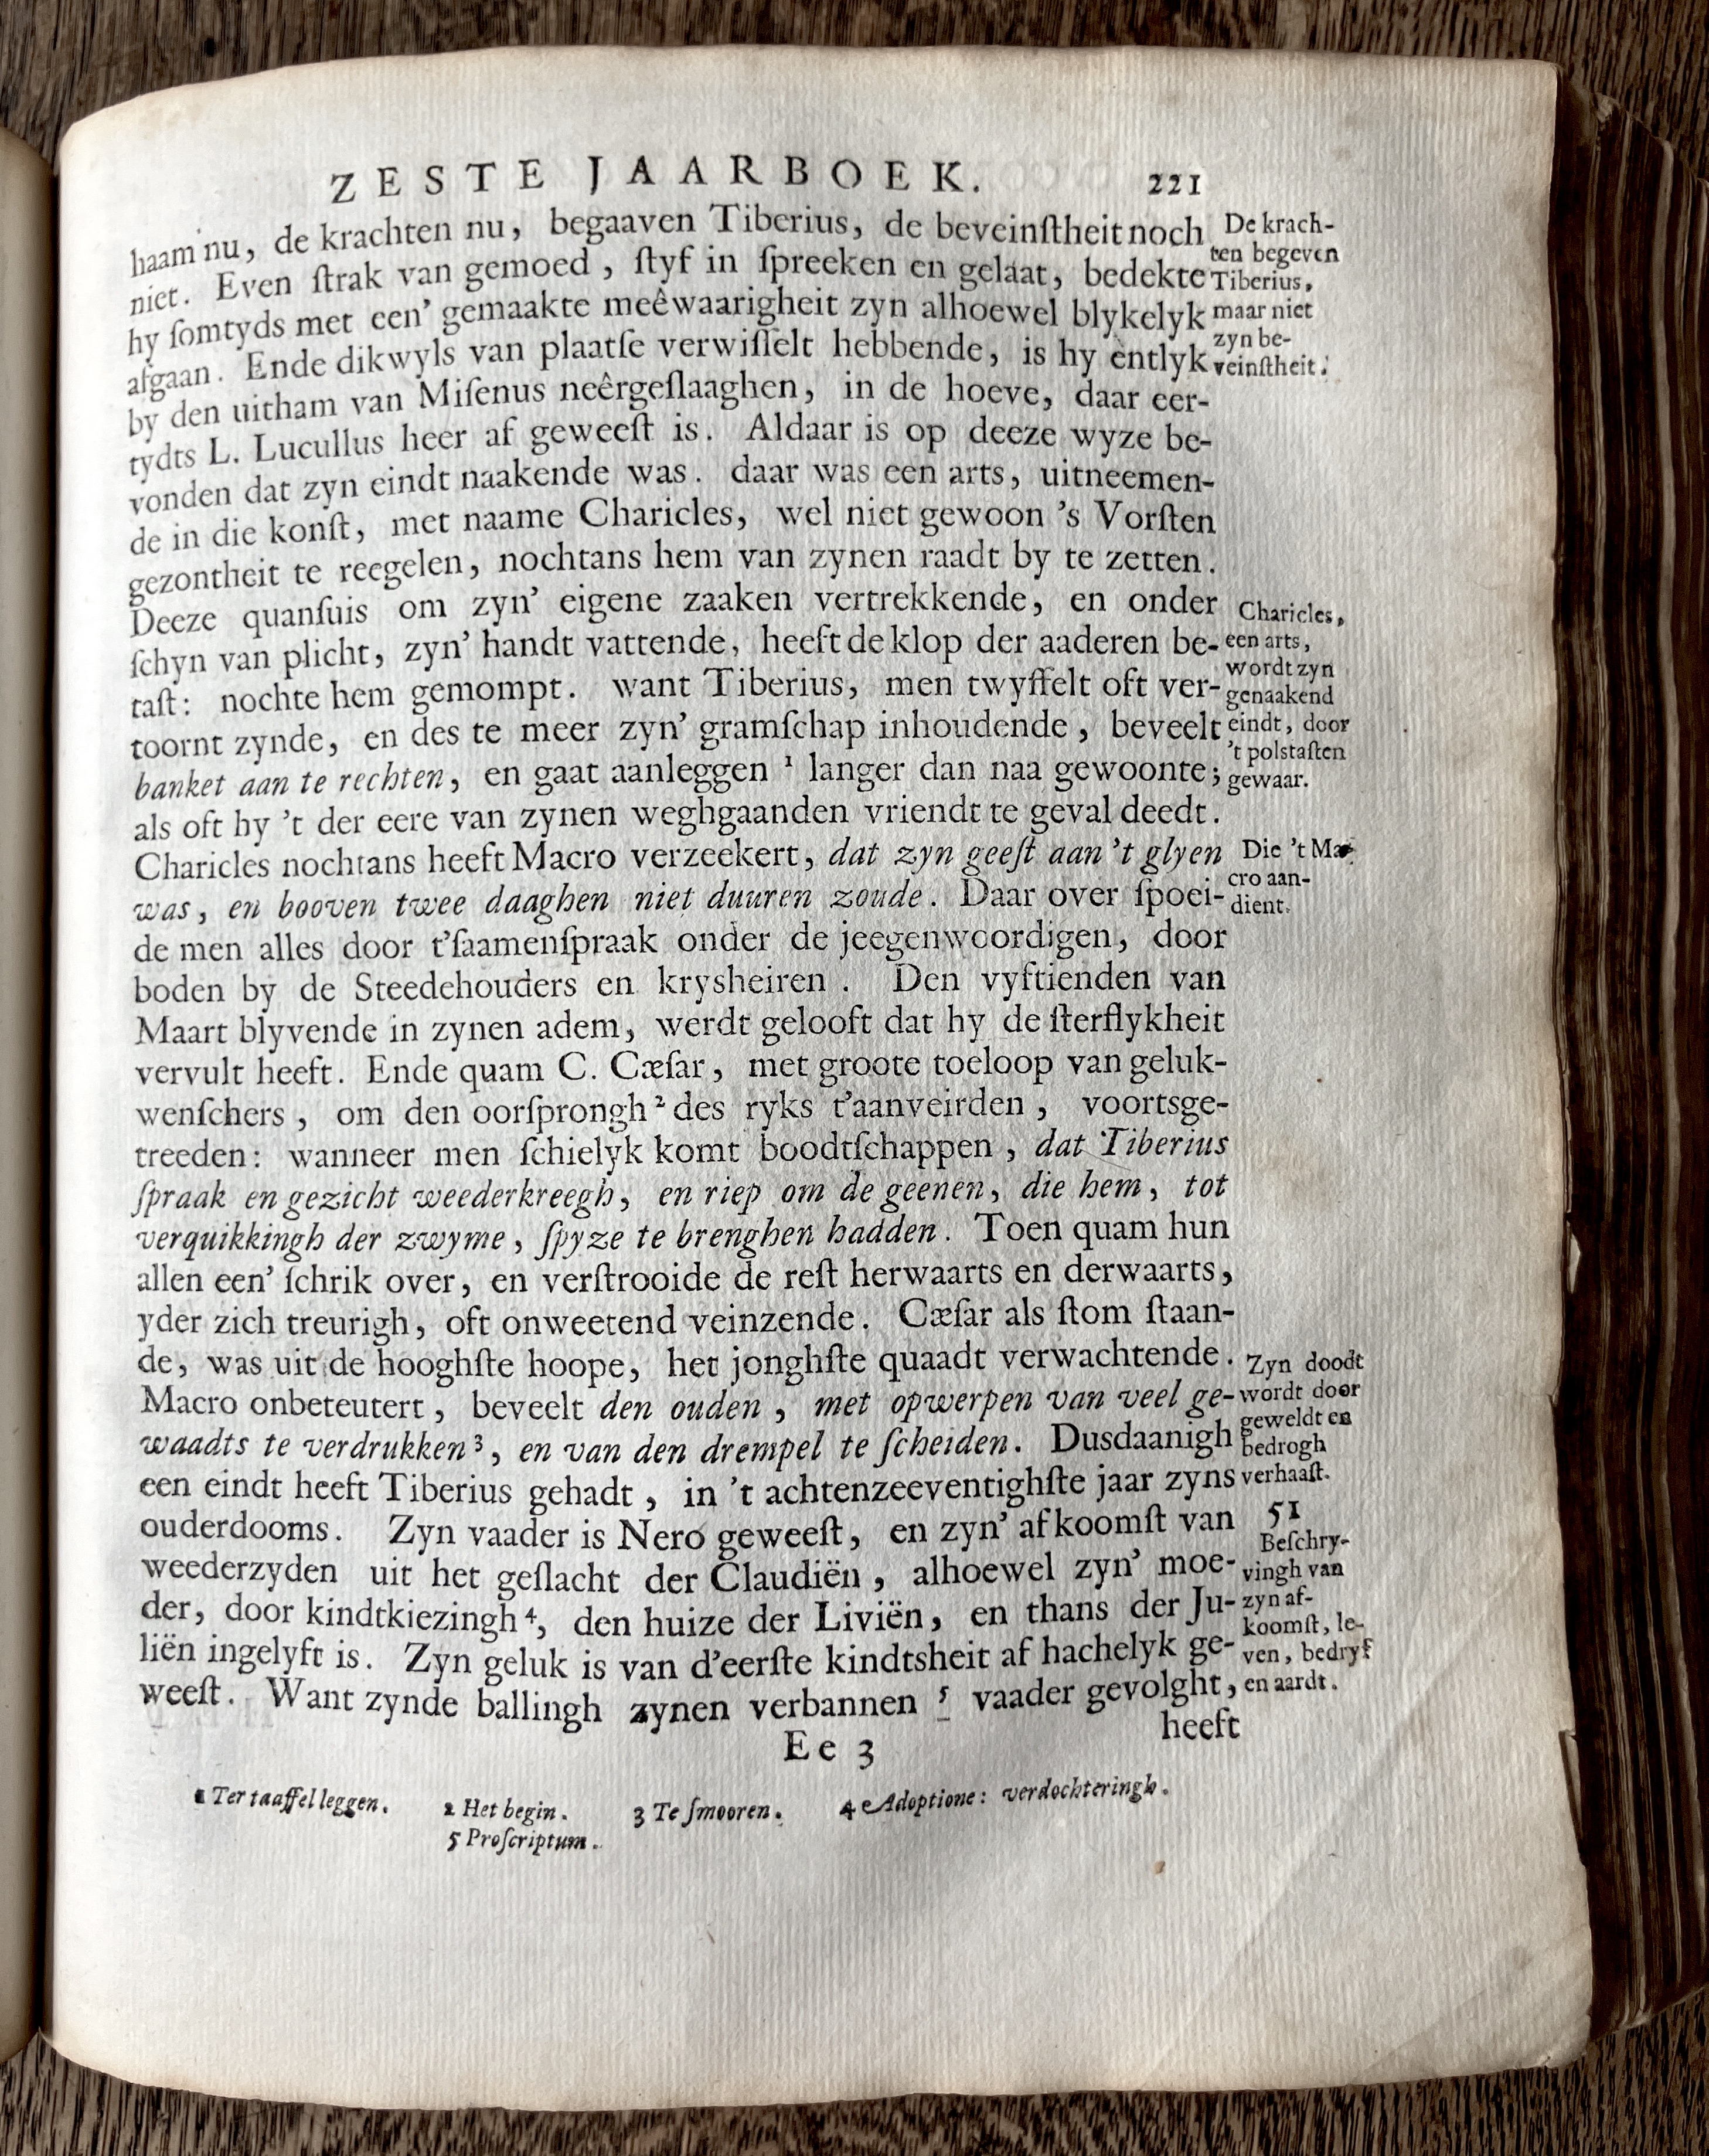 ZESTE JAARBOEK. 221
haam nu, de krachten nu, begaaven Tiberius, de beveinſtheit noch
niet. Even ſtrak van gemoed, ſtyf in ſpreeken en gelaat, bedekte
hy ſomtyds met een' gemaakte meêwaarigheit zyn alhoewel blykelyk
afgaan. Ende dikwyls van plaatſe verwiſſelt hebbende, is hy entlyk
by den uitham van Miſenus neêrgeſlaaghen, in de hoeve, daar eer-
tydts L. Lucullus heer af geweeſt is. Aldaar is op deeze wyze be-
vonden dat zyn eindt naakende was. daar was een arts, uitneemen-
de in die konſt, met naame Charicles, wel niet gewoon 's Vorſten
gezontheit te reegelen, nochtans hem van zynen raadt by te zetten.
Deeze quanſuis om zyn' eigene zaaken vertrekkende, en onder
ſchyn van plicht, zyn' handt vattende, heeft de klop der aaderen be-
taſt: nochte hem gemompt. want Tiberius, men twyffelt oft ver-
toornt zynde, en des te meer zyn' gramſchap inhoudende, beveelt
banket aan te rechten, en gaat aanleggen ¹ langer dan naa gewoonte;
als oft hy 't der eere van zynen weghgaanden vriendt te geval deedt.
Charicles nochtans heeft Macro verzeekert, dat zyn geeſt aan 't glyen
was, en booven twee daaghen niet duuren zoude. Daar over ſpoei-
de men alles door t'ſaamenſpraak onder de jeegenwoordigen, door
boden by de Steedehouders en krysheiren. Den vyftienden van
Maart blyvende in zynen adem, werdt gelooft dat hy de ſterflykheit
vervult heeft. Ende quam C. Cæſar, met groote toeloop van geluk-
wenſchers, om den oorſprongh ² des ryks t'aanveirden, voortsge-
treeden: wanneer men ſchielyk komt boodtſchappen, dat Tiberius
ſpraak en gezicht weederkreegh, en riep om de geenen, die hem, tot
verquikkingh der zwyme, ſpyze te brenghen hadden. Toen quam hun
allen een' ſchrik over, en verſtrooide de reſt herwaarts en derwaarts,
yder zich treurigh, oft onweetend veinzende. Cæſar als ſtom ſtaan-
de, was uit de hooghſte hoope, het jonghſte quaadt verwachtende.
Macro onbeteutert, beveelt den ouden, met opwerpen van veel ge-
waadts te verdrukken ³, en van den drempel te ſcheiden. Dusdaanigh
een eindt heeft Tiberius gehadt, in 't achtenzeeventighſte jaar zyns
ouderdooms. Zyn vaader is Nero geweeſt, en zyn' afkoomſt van
weederzyden uit het geſlacht der Claudiën, alhoewel zyn' moe-
der, door kindtkiezingh ⁴, den huize der Liviën, en thans der Ju-
liën ingelyft is. Zyn geluk is van d'eerſte kindtsheit af hachelyk ge-
weeſt. Want zynde ballingh zynen verbannen ⁵ vaader gevolght,
heeft
Ee 3
De krach-
ten begeven
Tiberius,
maar niet
zyn be-
veinſtheit.
Charicles,
een arts,
wordt zyn
genaakend
eindt, door
't polstaſten
gewaar.
Die 't Ma-
cro aan-
dient.
Zyn doodt
wordt door
geweldt en
bedrogh
verhaaſt.
51
Beſchry-
vingh van
zyn af-
koomſt, le-
ven, bedryf
en aardt.
1 Ter taaffel leggen. 2 Het begin. 3 Te ſmooren. 4 Adoptione: verdochteringh.
5 Proſcriptum.